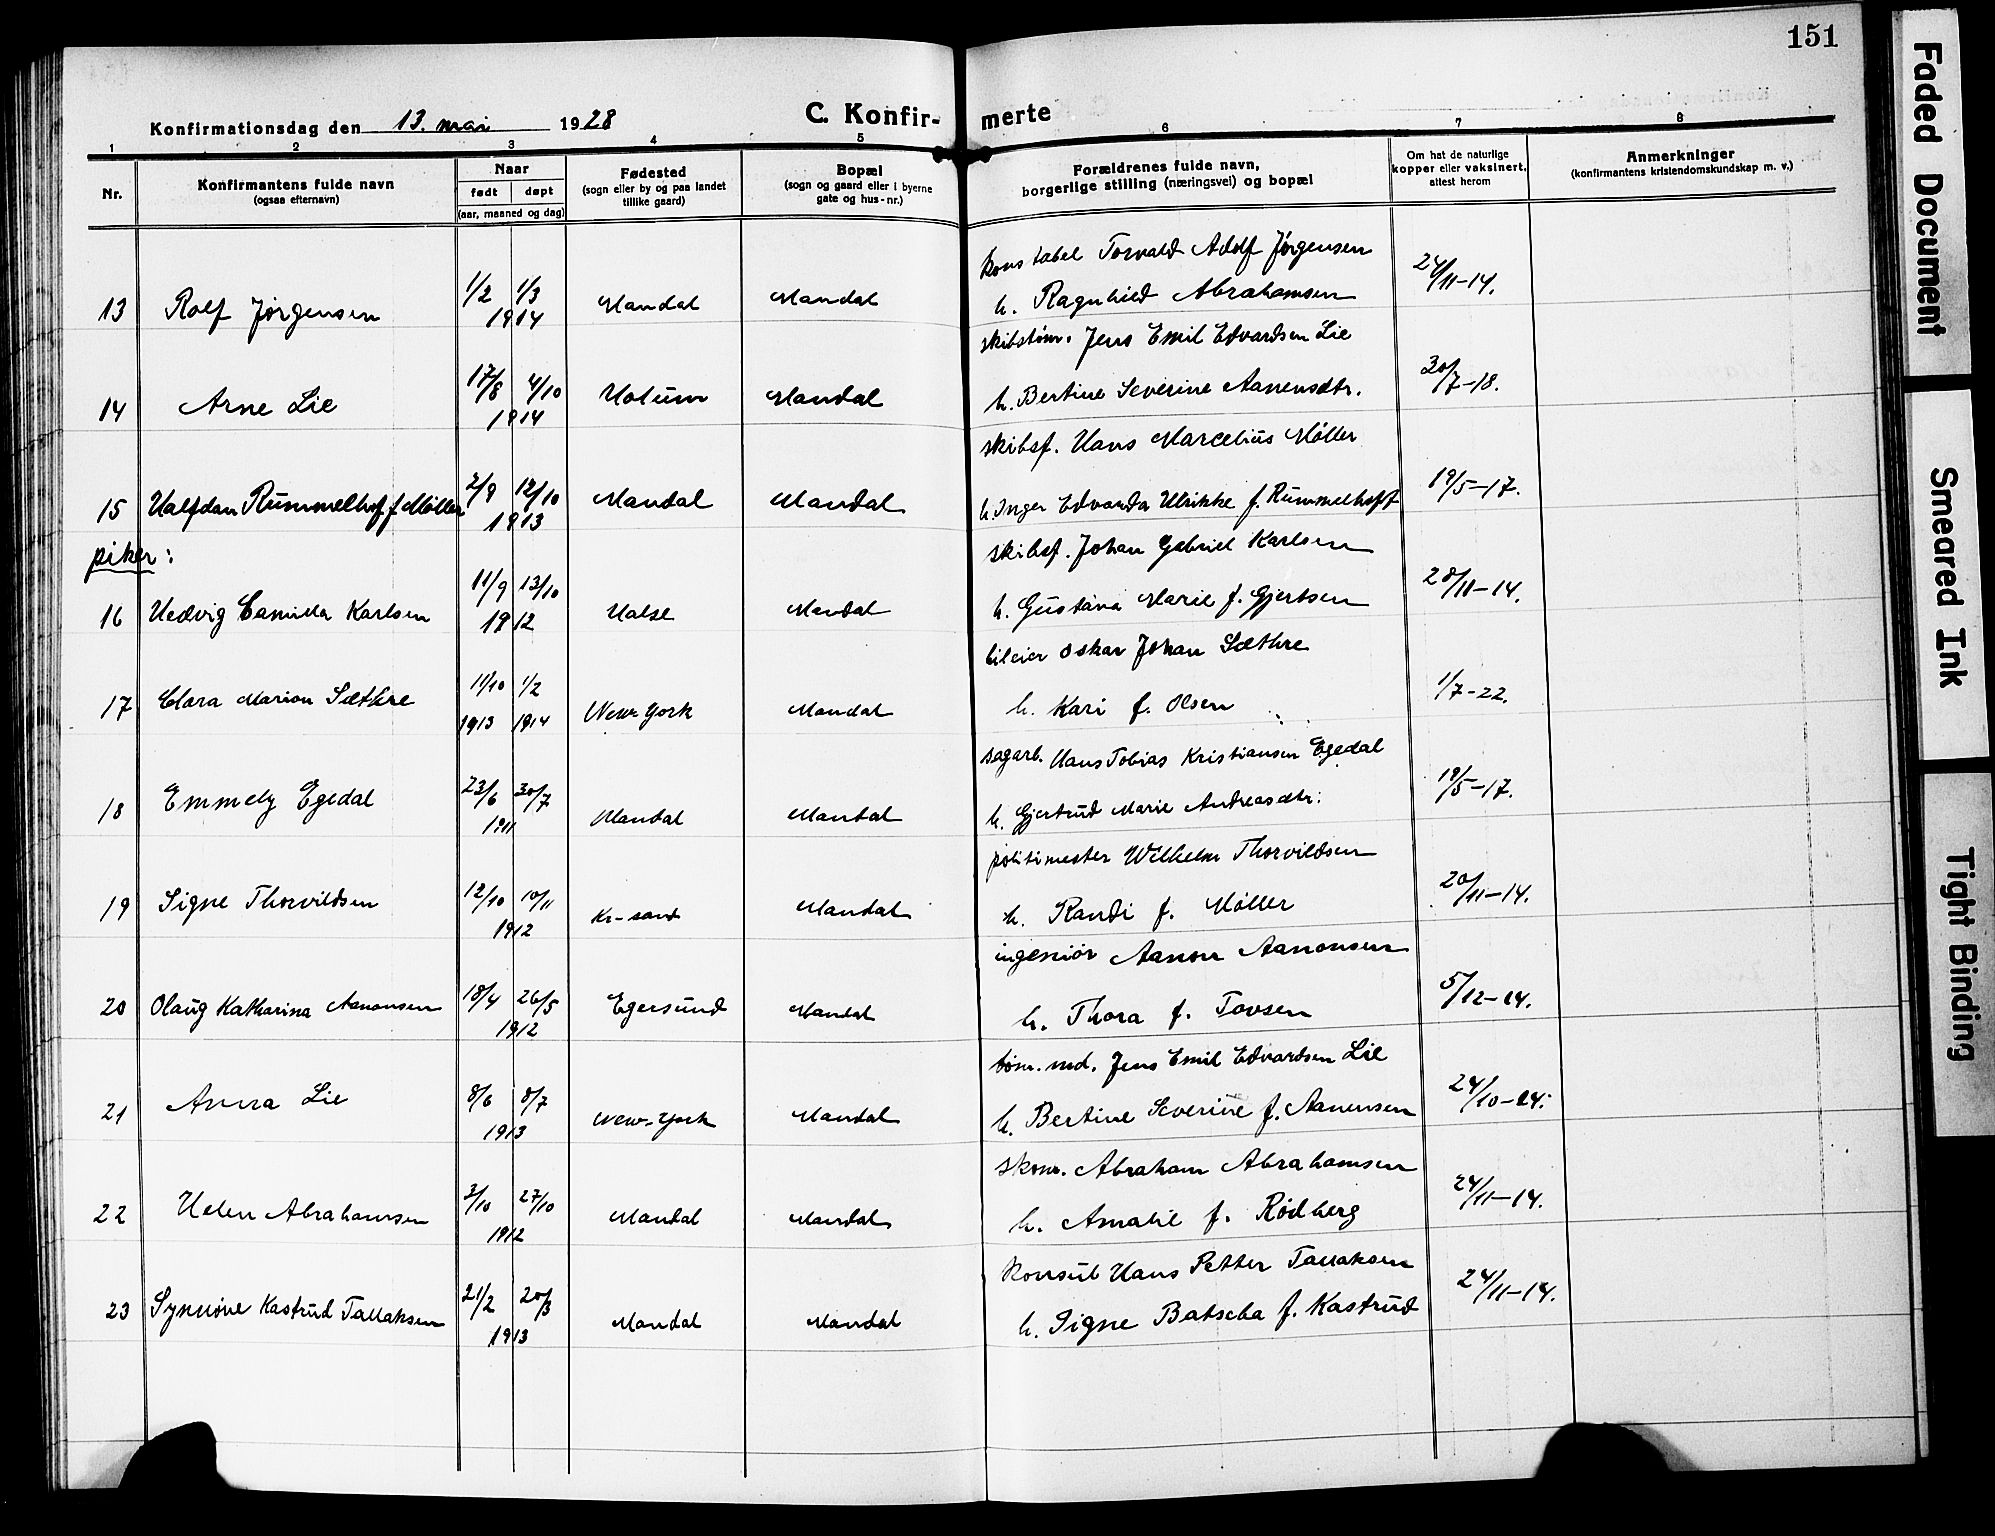 151
Konfirmationsdag den 13. mai 1928
C. Konfirmerte
1 2 3 4 5 6 7 8
Nr.
Konfirmantens fulde navn
(ogsaa efternavn)
Naar
født døpt
(aar, maaned og dag)
Fødested
(sogn eller by og paa landet
tillike gaard)
Bopæl
(sogn og gaard eller i byerne
gate og hus-nr.)
Forældrenes fulde navn,
borgerlige stilling (næringsvei) og bopæl
Om hat de naturlige
kopper eller vaksinert,
attest herom
Anmerkninger
(konfirmantens kristendomskundskap m. v.)
konstabel Torvald Adolf Jørgensen
13 Rolf Jørgensen 1/2 1/3 1914 Mandal Mandal h. Ragnhild Abrahamsen 24/11-14.
skibstøm. Jens Emil Edvardsen Lie
14 Arne Lie 17/8 4/10 1914 Holum Mandal h. Bertine Severine Aanensdtr. 30/7-18.
skibsf. Hans Marcelius Møller
15 Halfdan Rummelhoff Møller 2/9 12/10 1913 Mandal Mandal h. Inger Edvarda Ulrikke f. Rummelhoff 19/5-17.
piker:
skibsf. Johan Gabriel Karlsen
16 Hedvig Camilla Karlsen 11/9 13/10 1912 Halse Mandal h. Gustava Marie f. Gjertsen 28/11-14.
bileier Oskar Johan Sæthre
17 Clara Marion Sæthre 11/10 1913 1/2 1914 New York Mandal h. Kari f. Olsen 1/7-22.
sagarb. Hans Tobias Kristiansen Egedal
18 Emmely Egedal 23/6 30/7 1911 Mandal Mandal h. Gjertrud Marie Andreasdtr. 19/5-17.
politimester Wilhelm Thorvildsen
19 Signe Thorvildsen 12/10 10/11 1912 Kr-sand Mandal h. Randi f. Møller 20/11-14.
ingeniør Aanon Aanonsen
20 Olaug Katharina Aanonsen 18/4 26/5 1912 Egersund Mandal h. Thora f. Tovsen 5/12-14.
tøm. md. Jens Emil Edvardsen Lie
21 Anna Lie 8/6 8/7 1913 New-York Mandal h. Bertine Severine f. Aanensen 24/10-24.
skom. Abraham Abrahamsen
22 Helen Abrahamsen 3/10 27/10 1912 Mandal Mandal h. Amalie f. Rødberg 24/11-14.
konsul Hans Petter Tallaksen
23 Synnøve Kastrud Tallaksen 21/2 20/3 1913 Mandal Mandal h. Signe Batseba f. Kastrud 24/11-14.
Faded Document
Smeared Ink
Tight Binding